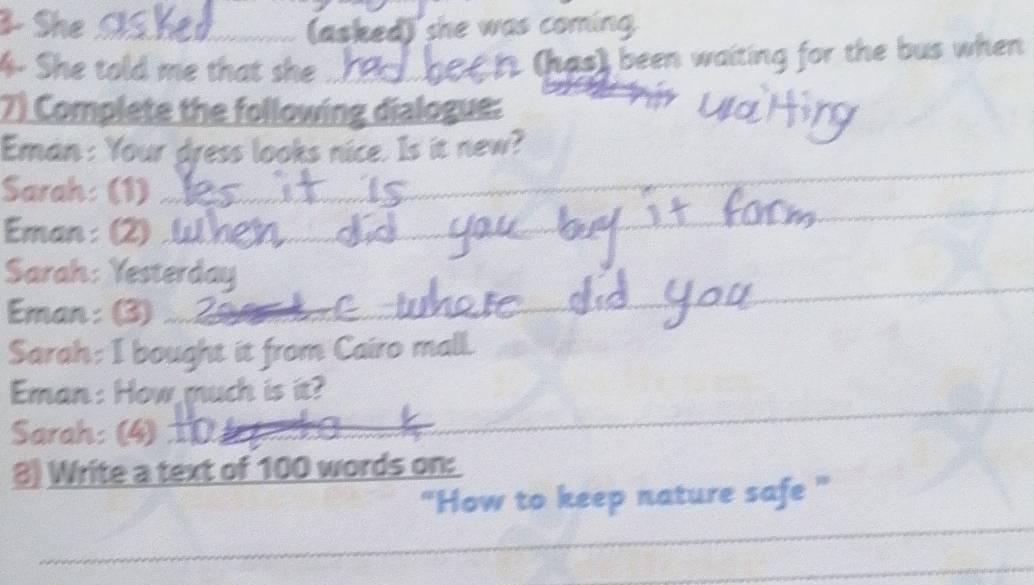 3- She asked (asked) she was coming.
4- She told me that she had been (has) been waiting for the bus when
waiting
7) Complete the following dialogue:
Eman: Your dress looks nice. Is it new?
Sarah: (1) Yes it is
Eman: (2) When did you buy it form
Sarah: Yesterday
Eman: (3) where did you
Sarah: I bought it from Cairo mall.
Eman: How much is it?
Sarah: (4)
8) Write a text of 100 words on:
"How to keep nature safe"